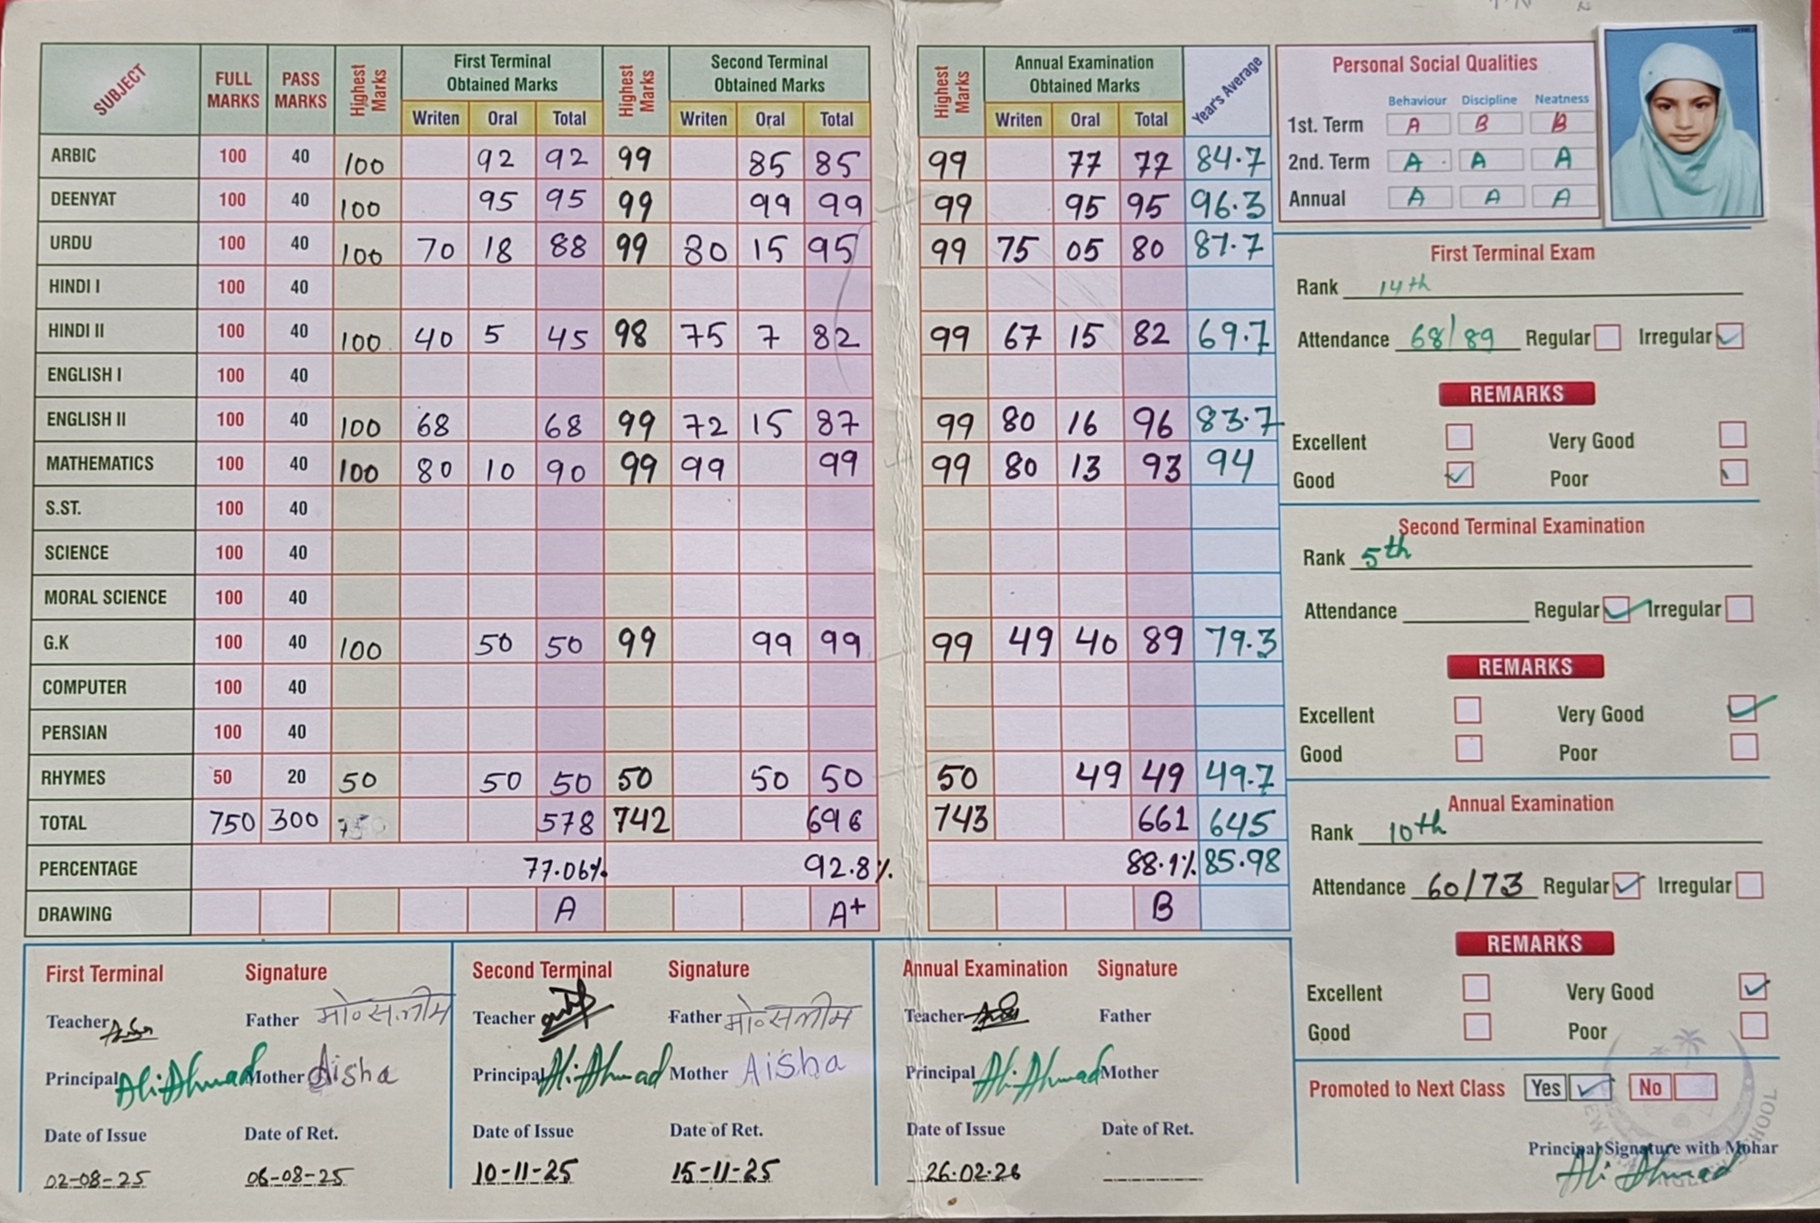 SUBJECT FULL MARKS PASS MARKS Highest Marks First Terminal Obtained Marks Highest Marks Second Terminal Obtained Marks Highest Marks Annual Examination Obtained Marks Year's Average
Writen Oral Total Writen Oral Total Writen Oral Total
ARBIC 100 40 100 92 92 99 85 85 99 77 77 84.7
DEENYAT 100 40 100 95 95 99 99 99 99 95 95 96.3
URDU 100 40 100 70 18 88 99 80 15 95 99 75 05 80 87.7
HINDI I 100 40
HINDI II 100 40 100 40 5 45 98 75 7 82 99 67 15 82 69.7
ENGLISH I 100 40
ENGLISH II 100 40 100 68 68 99 72 15 87 99 80 16 96 83.7
MATHEMATICS 100 40 100 80 10 90 99 99 99 99 80 13 93 94
S.ST. 100 40
SCIENCE 100 40
MORAL SCIENCE 100 40
G.K 100 40 100 50 50 99 99 99 99 49 40 89 79.3
COMPUTER 100 40
PERSIAN 100 40
RHYMES 50 20 50 50 50 50 50 50 50 49 49 49.7
TOTAL 750 300 750 578 742 696 743 661 645
PERCENTAGE 77.06% 92.8% 88.1% 85.98
DRAWING A A+ B
First Terminal Signature
Teacher Father मो० सलीम
Principal Ali Ahmad Mother Aisha
Date of Issue Date of Ret.
02-08-25 06-08-25
Second Terminal Signature
Teacher Father मो० सलीम
Principal Ali Ahmad Mother Aisha
Date of Issue Date of Ret.
10-11-25 15-11-25
Annual Examination Signature
Teacher Father
Principal Ali Ahmad Mother
Date of Issue Date of Ret.
26.02.26
Personal Social Qualities
Behaviour Discipline Neatness
1st. Term A B B
2nd. Term A A A
Annual A A A
First Terminal Exam
Rank 14th
Attendance 68/89 Regular Irregular
REMARKS
Excellent Very Good
Good Poor
Second Terminal Examination
Rank 5th
Attendance Regular Irregular
REMARKS
Excellent Very Good
Good Poor
Annual Examination
Rank 10th
Attendance 60/73 Regular Irregular
REMARKS
Excellent Very Good
Good Poor
Promoted to Next Class Yes No
Principal Signature with Mohar
Ali Ahmad